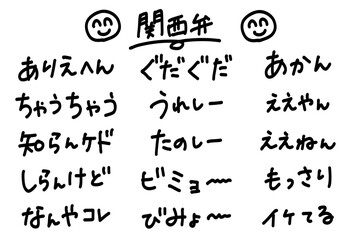 関西弁
ありえへん ぐだぐだ あかん
ちゃうちゃう うれしー ええやん
知らんケド たのしー ええねん
しらんけど ビミョ〜 もっさり
なんやコレ びみょ〜 イケてる